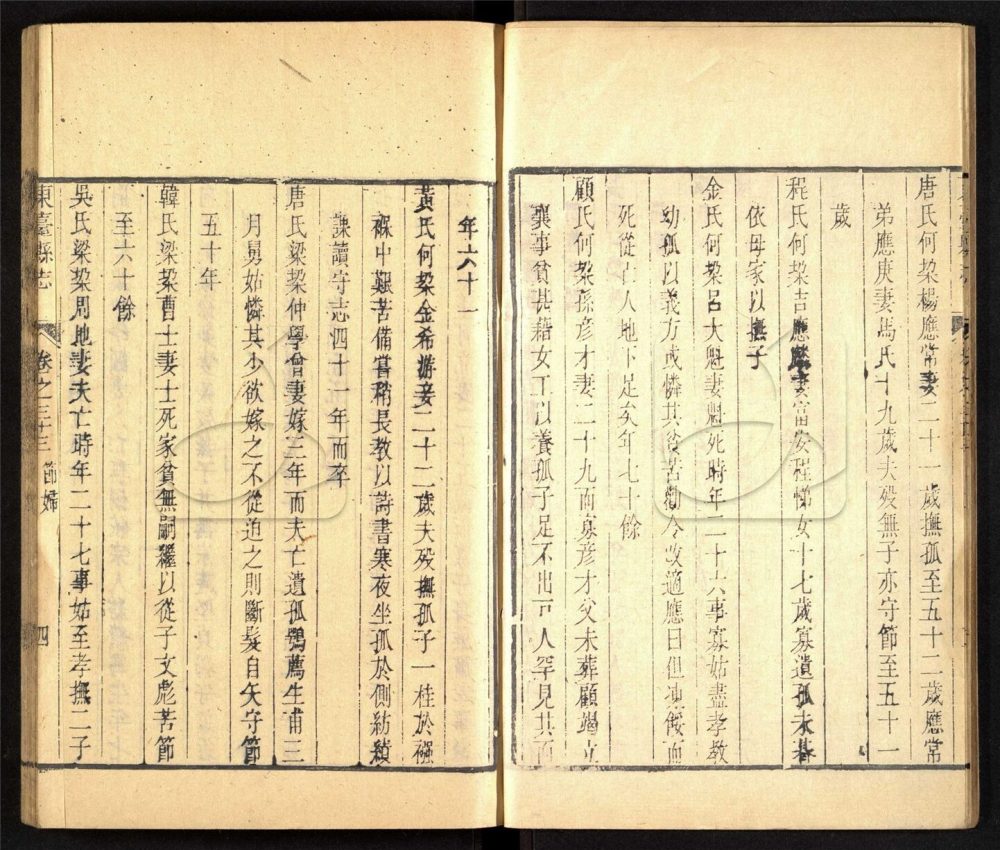 唐氏何垜楊應常妻二十一歲撫孤至五十二歲應常
弟應庚妻馬氏十九歲夫殁無子亦守節至五十一
歲
程氏何垜吉應妻富安程悌女十七歲寡遺孤未朞
依母家以撫子
金氏何垜呂大魁妻魁死時年二十六事寡姑盡孝教
幼孤以義方或憐其貧苦勸令改適應曰但凍餒而
死從古人地下足矣年七十餘
顧氏何垜孫彥才妻二十九而寡彥才父未葬顧竭力
襄事貧甚藉女工以養孤子足不出戸人罕見其面
年六十一
黃氏何垜金希游妾二十二歲夫殁撫孤子一桂於襁
褓中艱苦備嘗稍長教以詩書寒夜坐孤於側紡績
課讀守志四十一年而卒
唐氏梁垜仲學曾妻嫁三年而夫亡遺孤鶚薦生甫三
月舅姑憐其少欲嫁之不從迫之則斷髮自矢守節
五十年
韓氏梁垜曹士妻士死家貧無嗣繼以從子文彪苦節
至六十餘
吳氏梁垜周地妻夫亡時年二十七事姑至孝撫二子
東臺縣志 卷之三十三 節婦 四